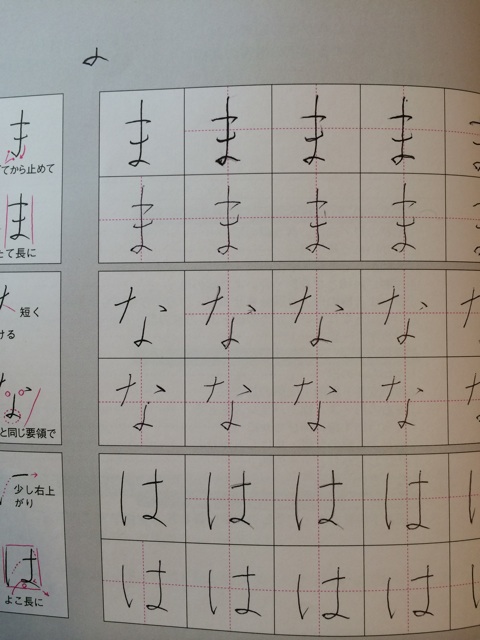 ま ま ま ま ま
てから止めて
ま ま ま ま ま
ま
たて長に
な な な な
短く
ける
な な な な
と同じ要領で
は は は は
少し右上
がり
は は は は
は
よこ長に